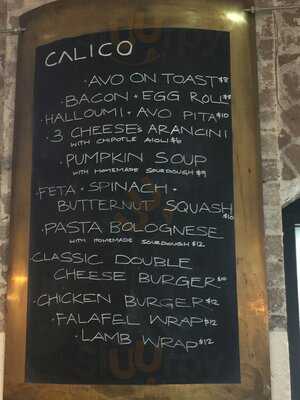 CALICO
· AVO ON TOAST $8
· BACON · EGG ROLL $8
· HALLOUMI · AVO PITA $10
· 3 CHEESES ARANCINI
WITH CHIPOTLE AIOLI $6
· PUMPKIN SOUP
WITH HOMEMADE SOURDOUGH $9
· FETA · SPINACH ·
BUTTERNUT SQUASH $10
· PASTA BOLOGNESE
WITH HOMEMADE SOURDOUGH $12
· CLASSIC DOUBLE
CHEESE BURGER $10
· CHICKEN BURGER $12
· FALAFEL WRAP $12
· LAMB WRAP $12